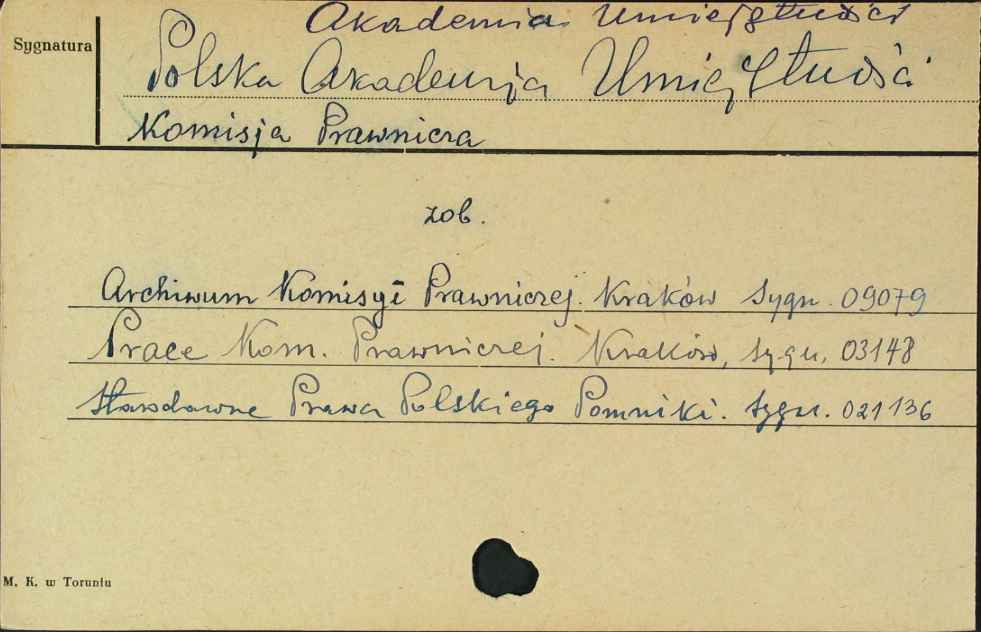 Akademia Umiejętności
Sygnatura
Polska Akademja Umiejętności
Komisja Prawnicza
zob.
Archiwum Komisyi Prawniczej. Kraków Sygn. 09079
Prace Kom. Prawniczej. Kraków, sygn. 03148
Starodawne Prawa Polskiego Pomniki. Sygn. 021136
M. K. w Toruniu